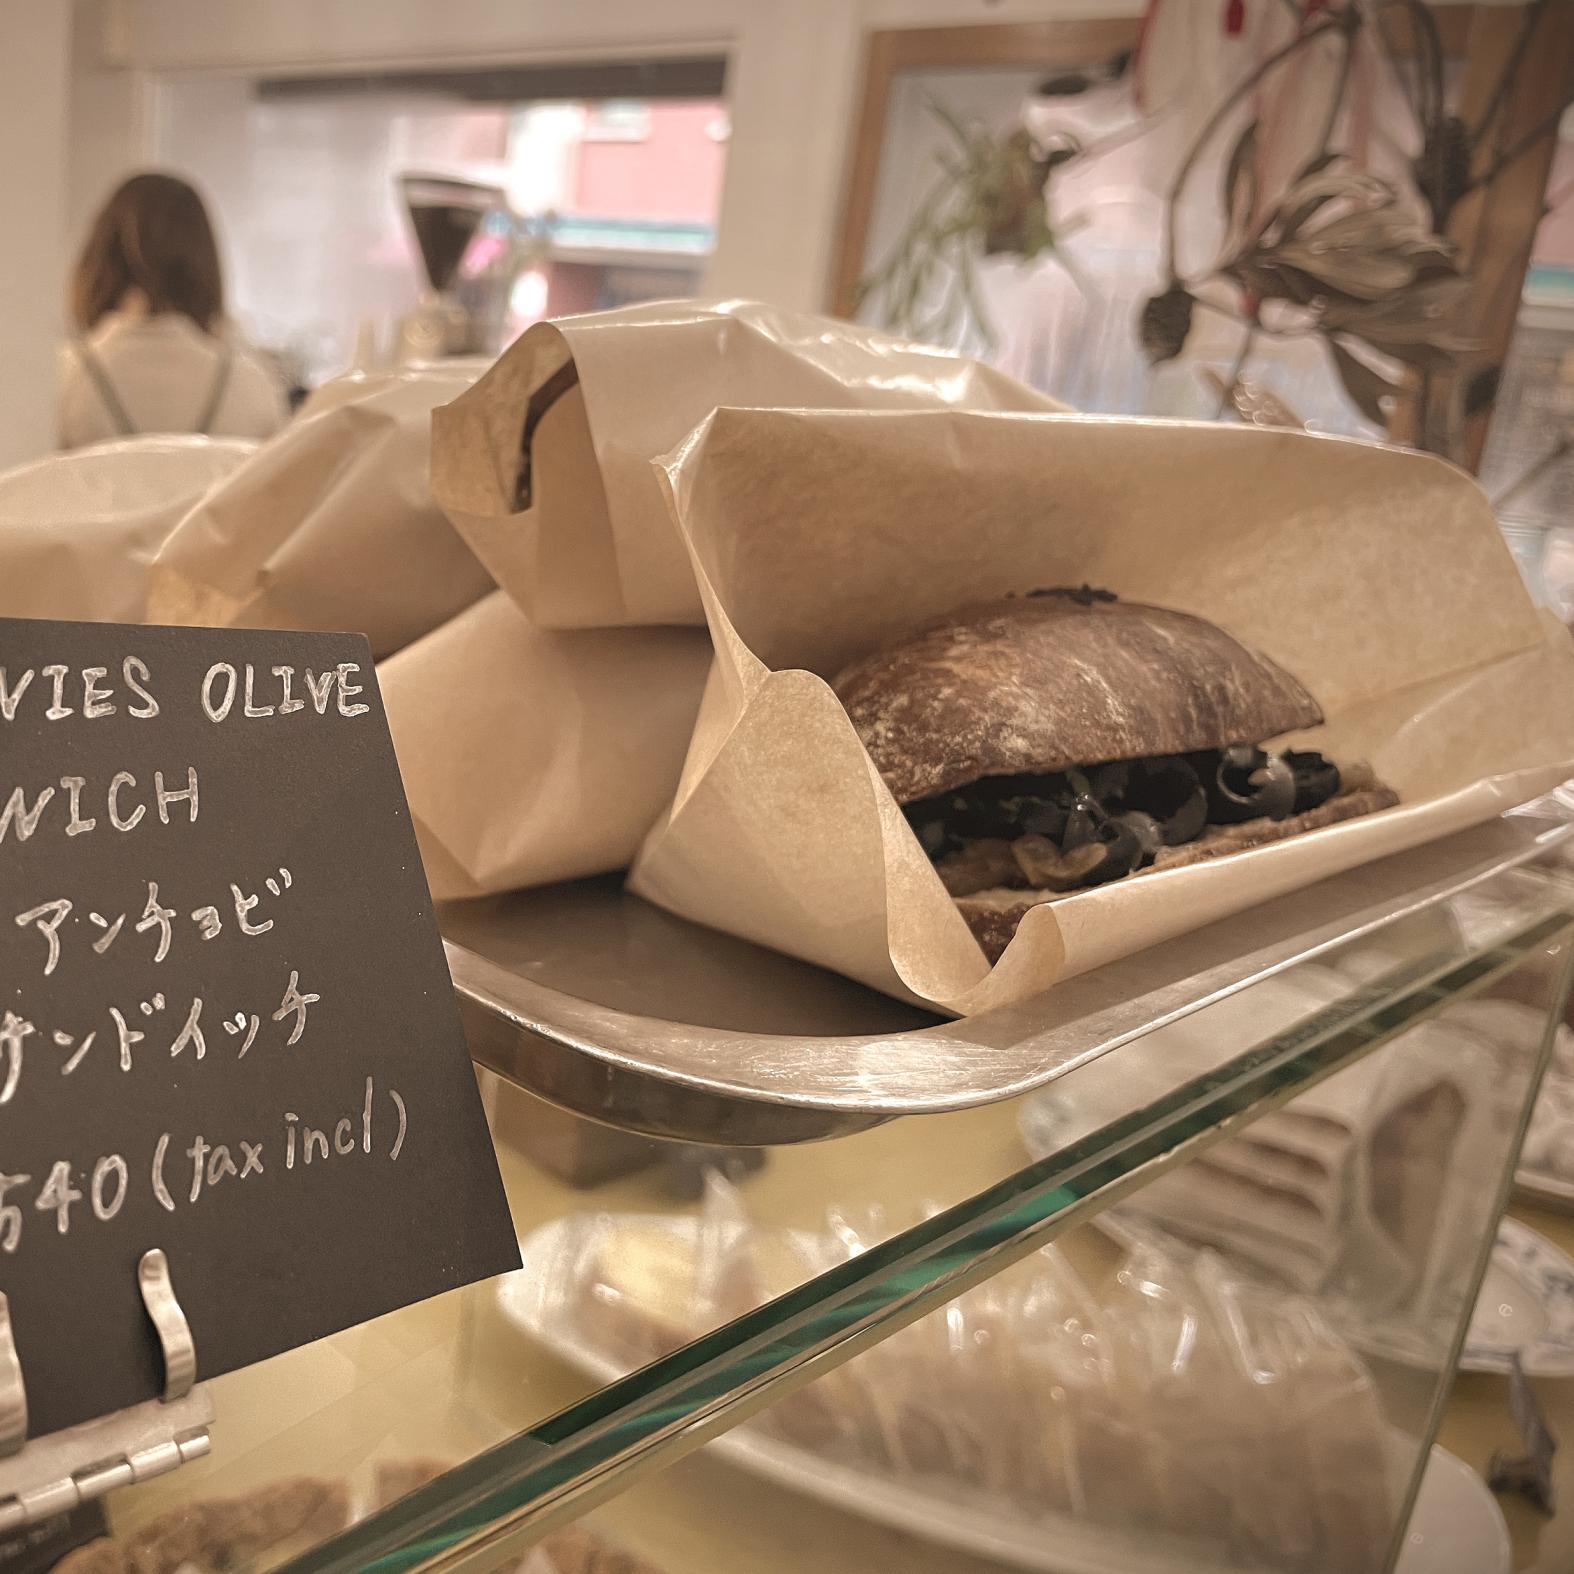 VIES OLIVE
WICH
アンチョビ
サンドイッチ
540 (tax incl)